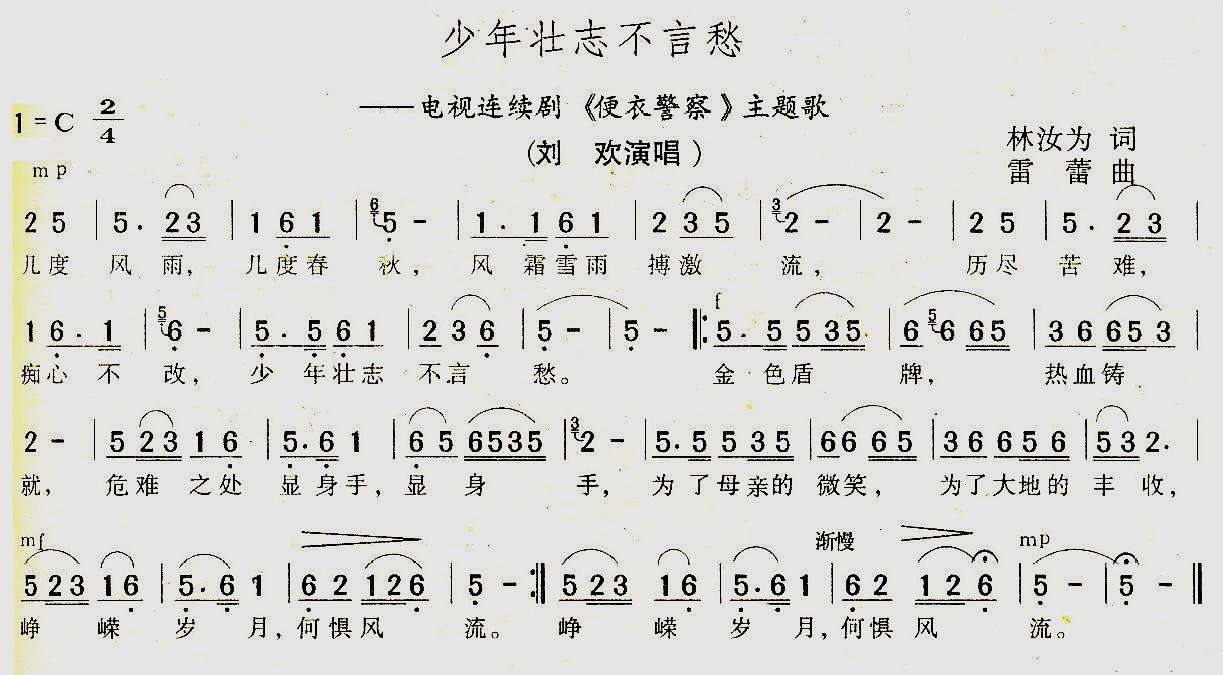 少年壮志不言愁
——电视连续剧《便衣警察》主题歌
1=C 2/4
(刘 欢演唱)
林汝为 词
mp
雷 蕾 曲
2 5 | 5. 2 3 | 1 6 1 | 6 5 - | 1. 1 6 1 | 2 3 5 | 3 2 - | 2 - | 2 5 | 5. 2 3 |
几度 风 雨, 几度春 秋, 风 霜雪雨 搏激 流, 历尽 苦 难,
f
1 6. 1 | 5 6 - | 5. 5 6 1 | 2 3 6 | 5 - | 5 - |: 5. 5 5 3 5 | 6 5 6 6 5 | 3 6 6 5 3 |
痴心 不 改, 少 年壮志 不言 愁。 金 色盾 牌, 热血铸
2 - | 5 2 3 1 6 | 5. 6 1 | 6 5 6 5 3 5 | 3 2 - | 5. 5 5 3 5 | 6 6 6 5 | 3 6 6 5 6 | 5 3 2. |
就, 危难 之处 显身手, 显 身 手, 为 了母亲的 微笑, 为了大地的 丰 收,
mf 渐慢 mp
5 2 3 1 6 | 5. 6 1 | 6 2 1 2 6 | 5 - :| 5 2 3 1 6 | 5. 6 1 | 6 2 1 2 6 | 5 - | 5 - ‖
峥 嵘 岁 月, 何惧风 流。 峥 嵘 岁 月, 何惧风 流。